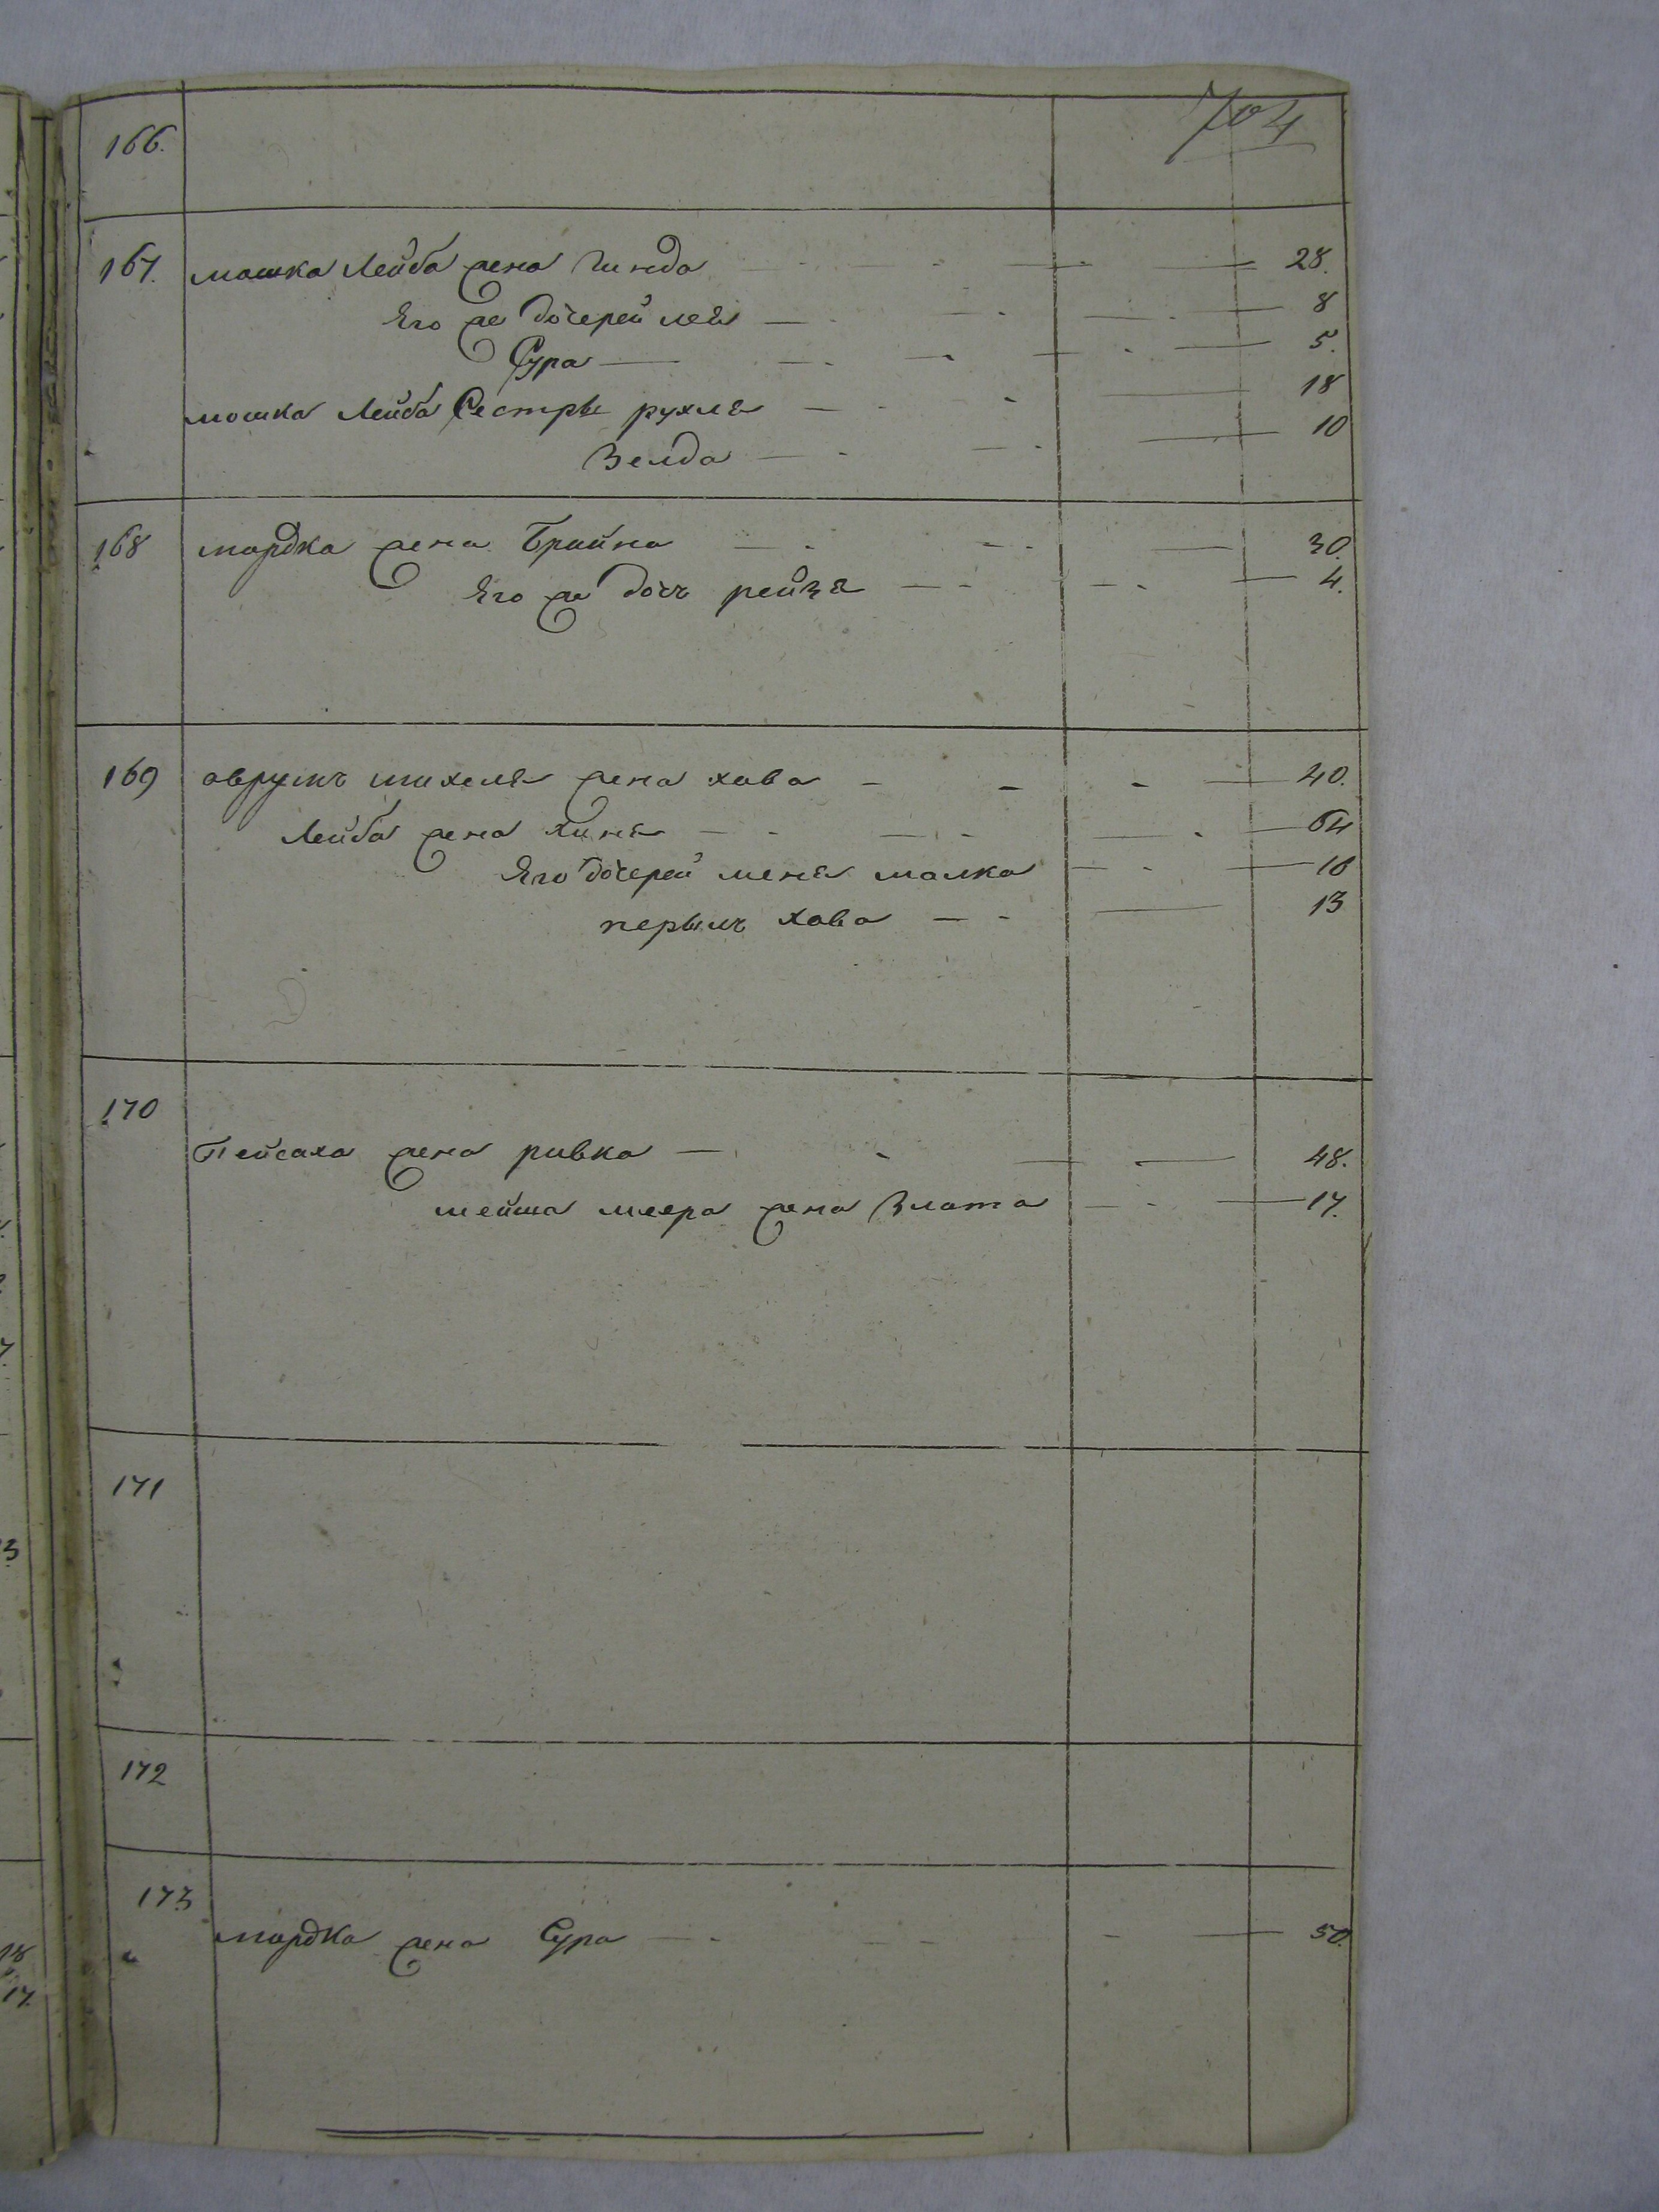 704
166.
167. мошка Лейба жена Гинда 28.
Его же дочерей лея 8
Сура 5.
мошка Лейба Сестры рухля 18
Зелда 10
168 мордка жена Брайна 30.
Его же дочь рейзя 4.
169 аврумъ михеля жена хава 40.
Лейба жена хиня 64
Его дочерей меня малка 16
перылъ хава 13
170
Пейсаха жена ривка 48.
мейша меера жена Злата 17.
171
172
173
мордка жена Сура 50.